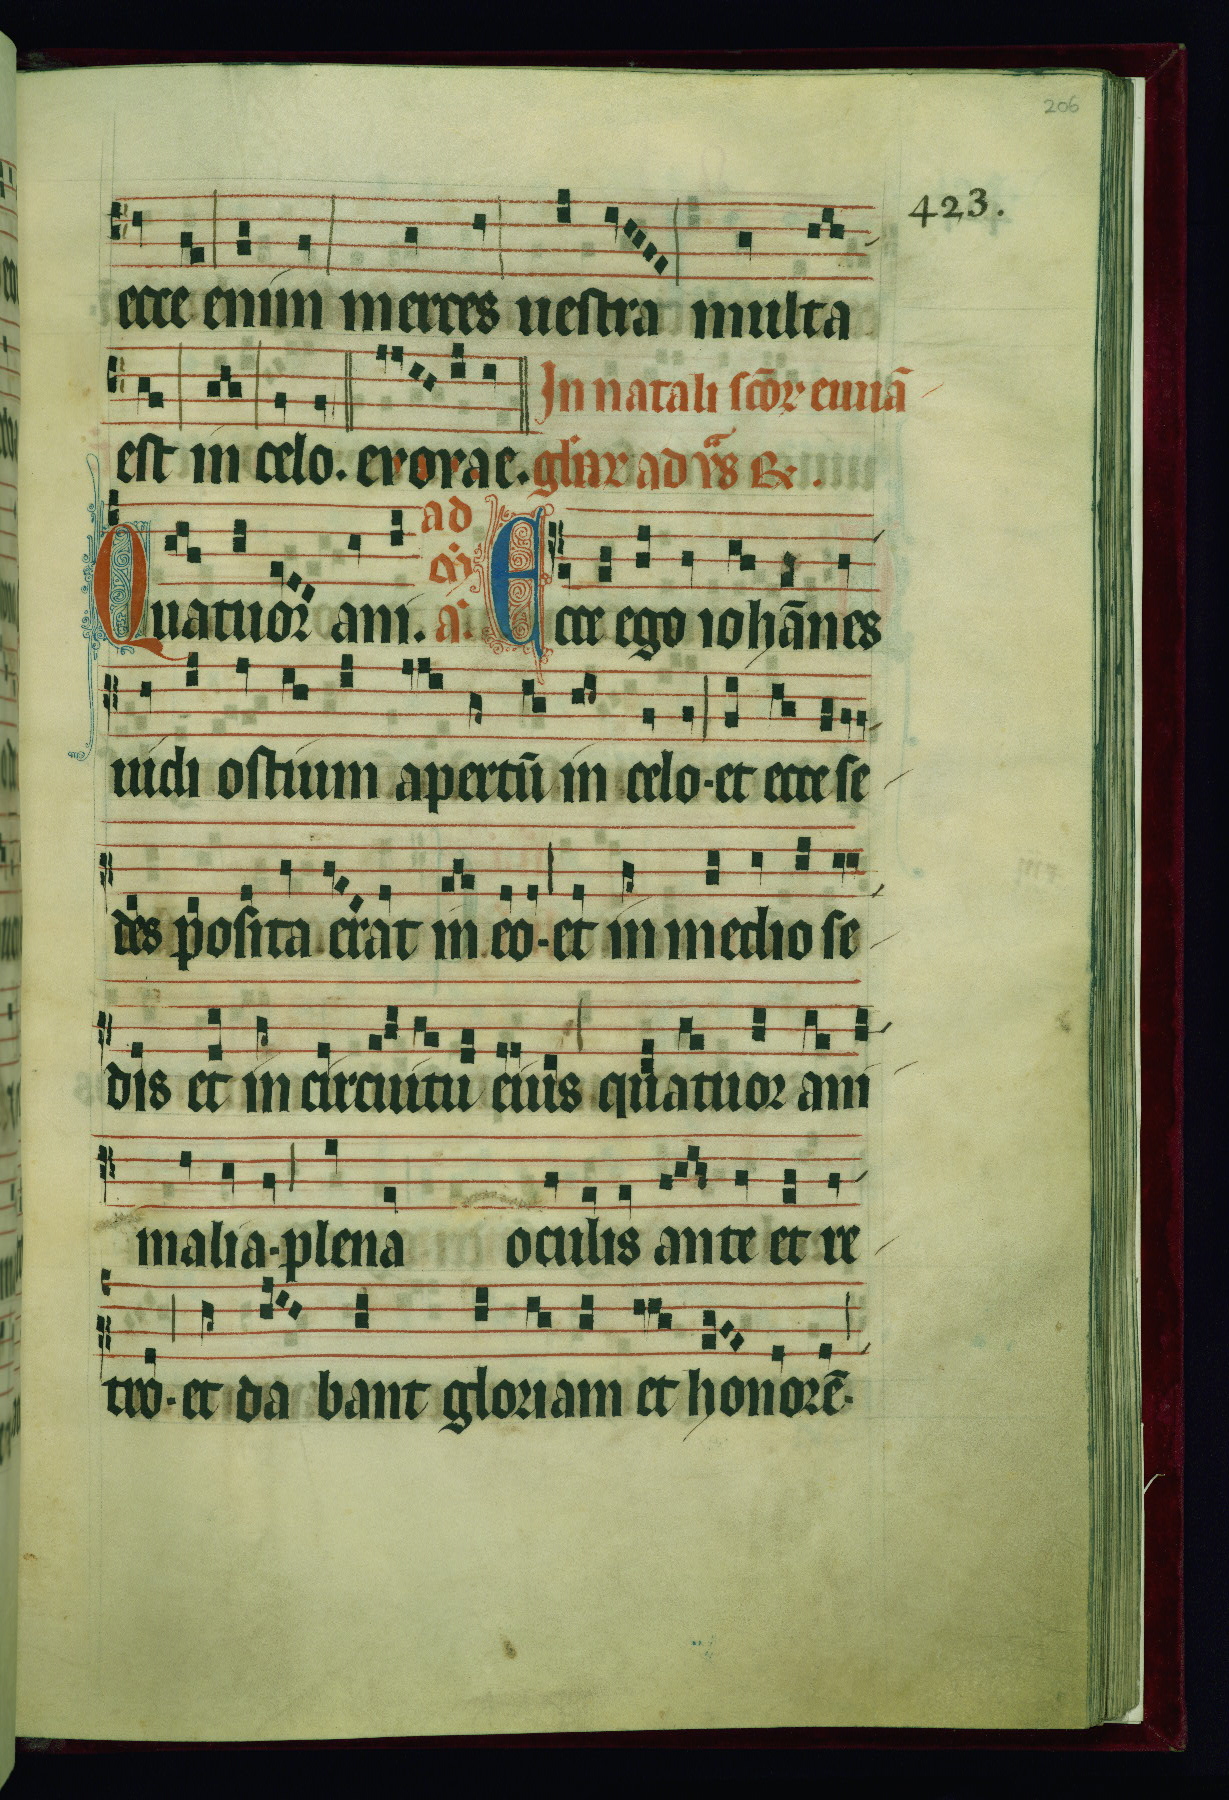 206
423.
ecce enim merces uestra multa
est in celo. euouae. In natali scōr euuā
gliar ad vs̄ R.
Quatuor ani. ad cā a. Ecce ego iohānes
uidi ostium apertū in celo·et ecce se
des posita erat in eo·et in medio se
dis et in circuitu eius quatuor ani
malia·plena oculis ante et re
tro·et da bant gloriam et honorē·